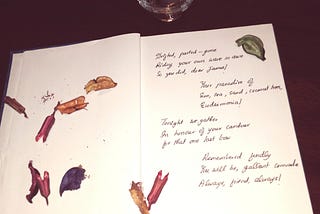 Drifted, parted – gone
Riding your own wave
So you did, dear James!
Your paradise of
Sun, sea, sand, coconut trees,
Eudaemonia!
Tonight we gather
In honour of your candour
for that one last bow
Remembered fondly
You will be, gallant comrade
Always, friend, always!